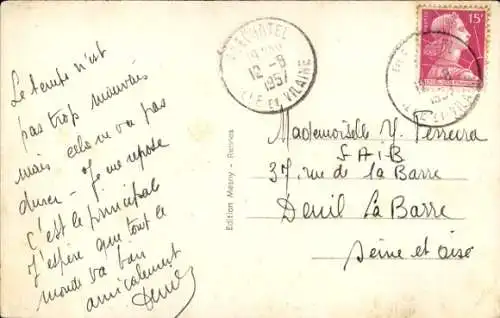 Le temps n'est
pas trop mauvais
mais cela ne va pas
durer - Je me repose
c'est le principal
J'espère que tout le
monde va bien
amicalement
Edition Mesny - Rennes
12 - 8
1957
ILLE ET VILAINE
15F
1957
ILLE ET VILAINE
Mademoiselle Y. Ferreira
S.A.I.B
37, rue de la Barre
Deuil La Barre
Seine et Oise